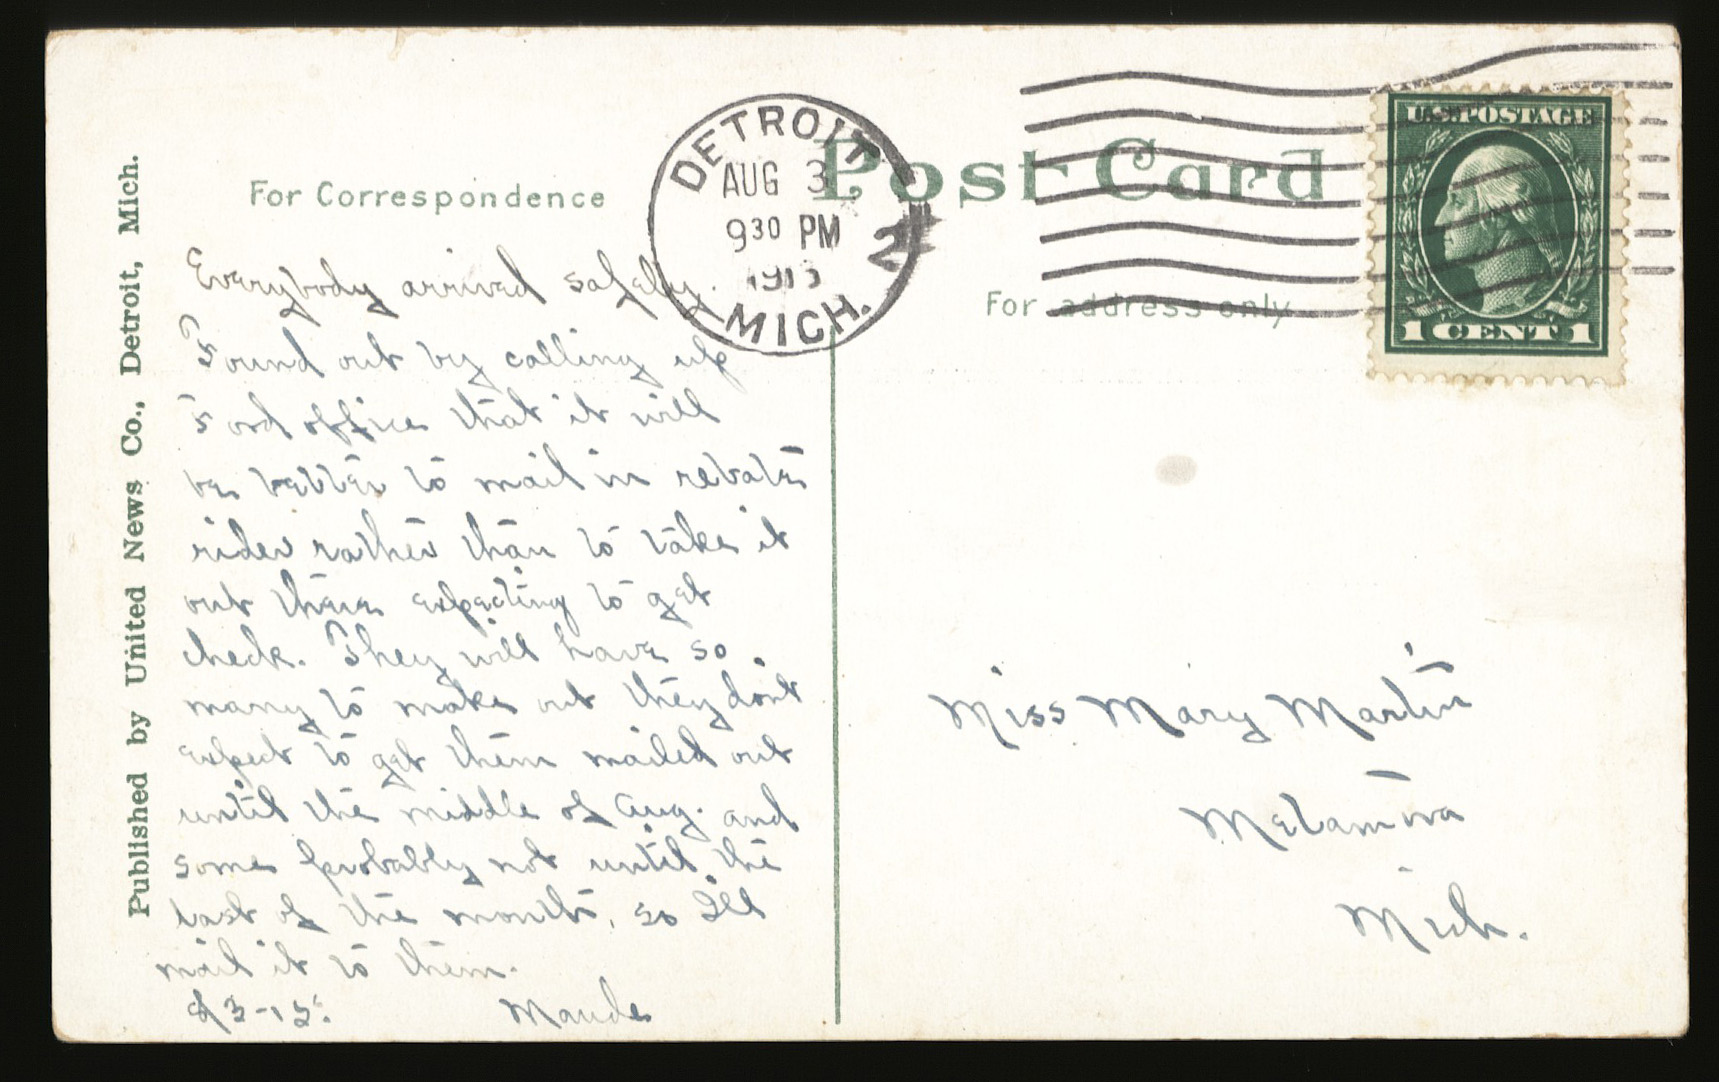 Published by United News Co., Detroit, Mich.
For Correspondence
Post Card
For address only
DETROIT
AUG 3
9 30 PM
1915
MICH.
2
U.S. POSTAGE
1 CENT 1
Everybody arrived safely.
Found out by calling up
Ford office that it will
be better to mail in rebate
rider rather than to take it
out there expecting to get
check. They will have so
many to make out they don't
expect to get them mailed out
until the middle of Aug. and
some probably not until the
last of the month, so I'll
mail it to them.
8-3-15. Maude
Miss Mary Martin
Metamora
Mich.